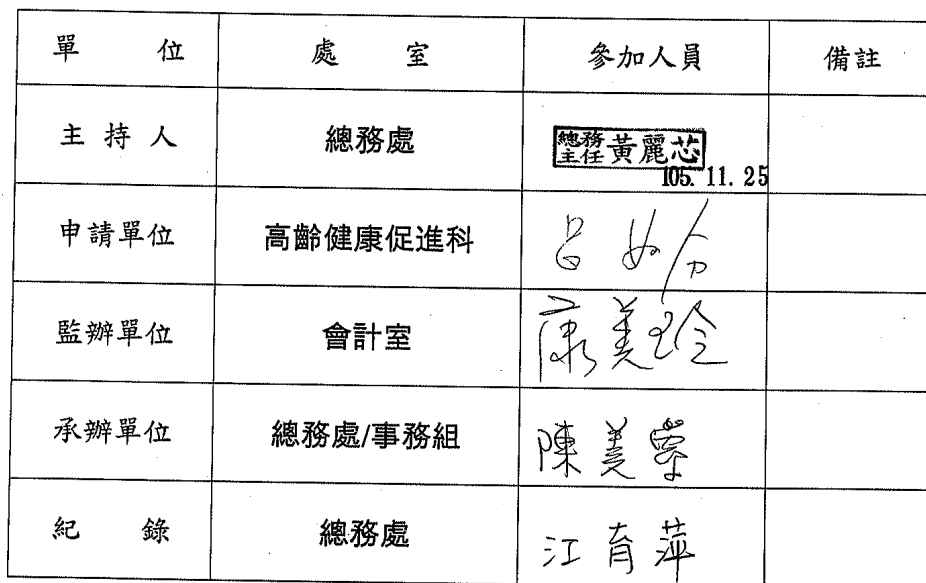 單位 處室 參加人員 備註
主持人 總務處 總務主任 黃麗芯
105.11.25
申請單位 高齡健康促進科 呂
監辦單位 會計室 康美玲
承辦單位 總務處/事務組 陳美
紀錄 總務處 江育萍